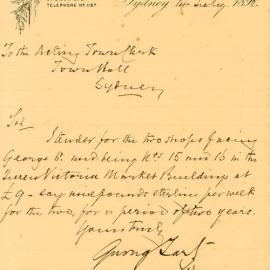 TELEPHONE No. 1187
Sydney 14 July 1898
To the Acting Town Clerk
Town Hall
Sydney
Sir
I tender for the two shops facing
George St. and being Nos 15 and 16 in the
Queen Victoria Market Buildings at
£9 - say nine pounds sterling per week
for the two, for a period of two years.
Yours truly
Quong Tart